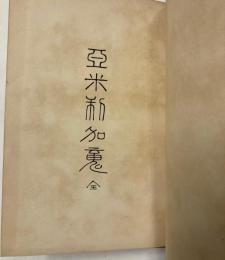 亞米利加彙
全